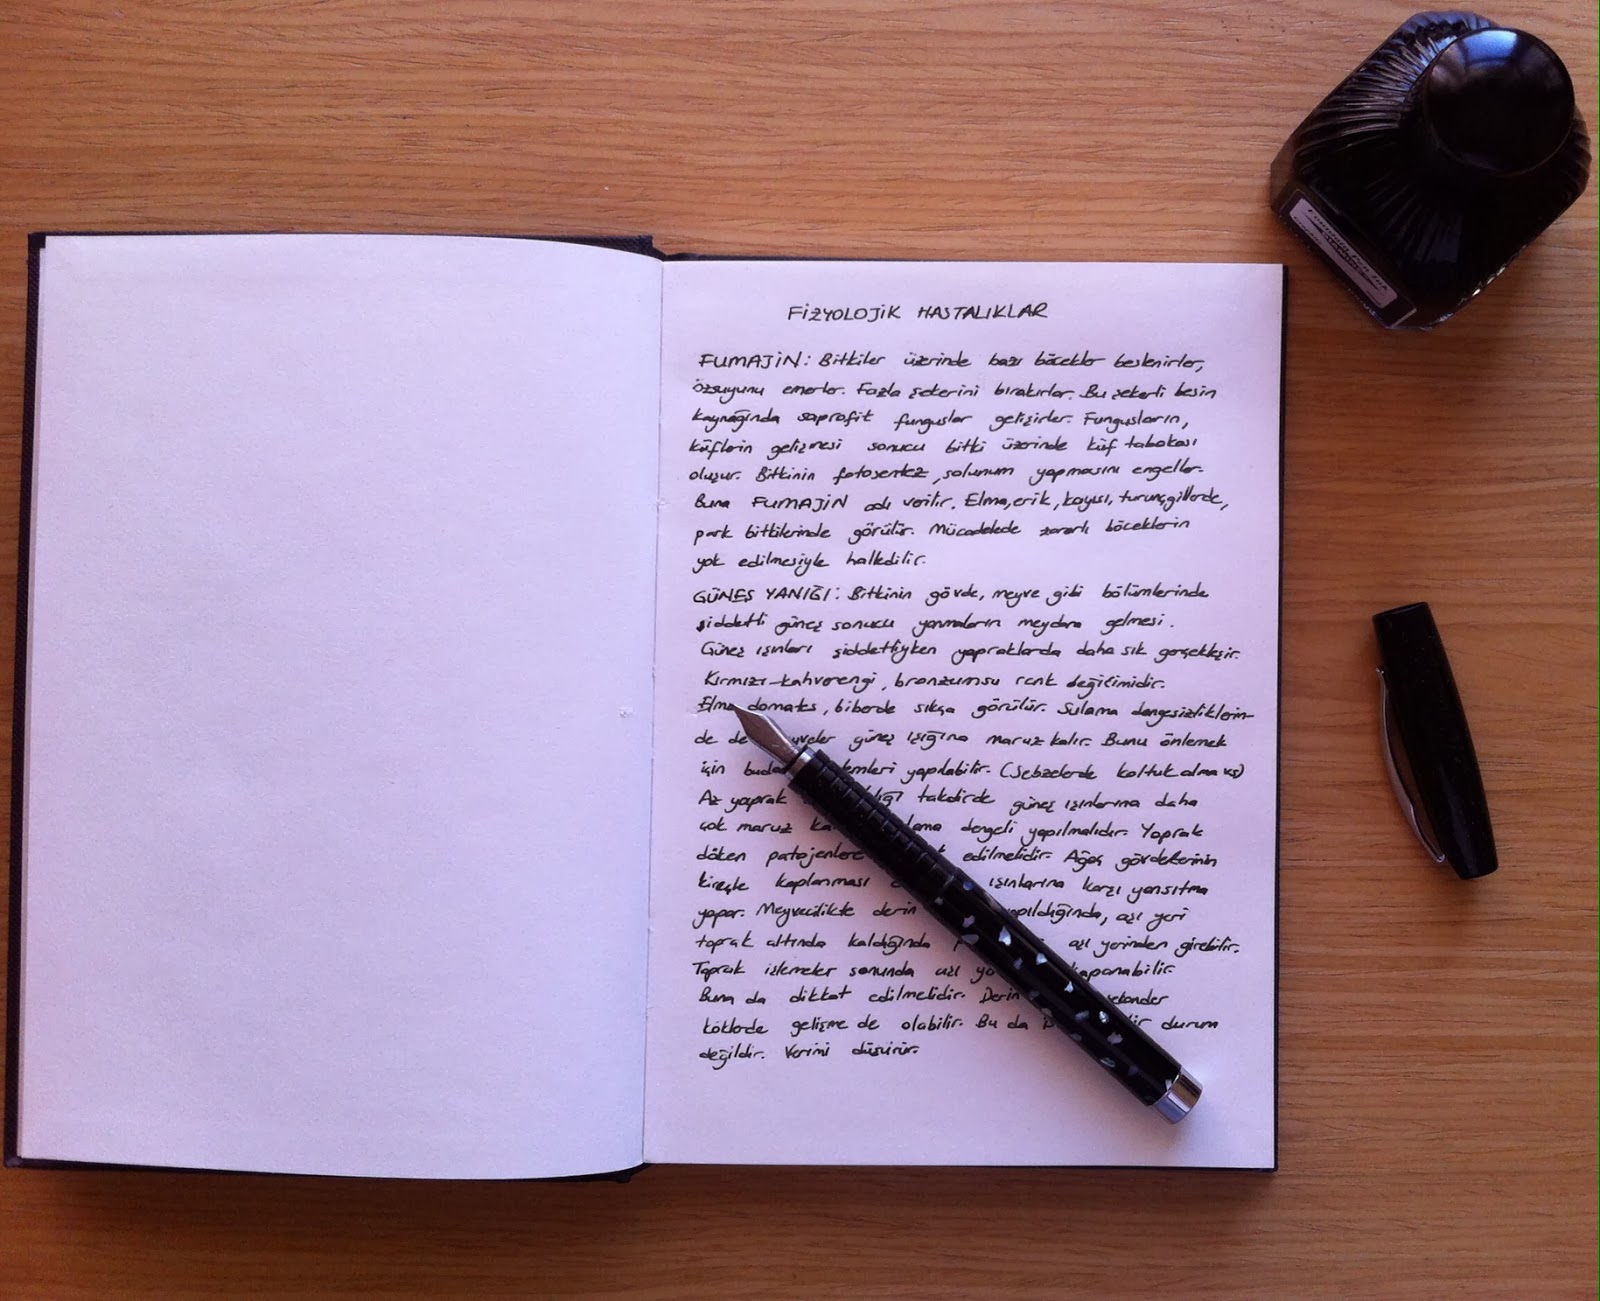 FİZYOLOJİK HASTALIKLAR
FUMAJİN: Bitkiler üzerinde bazı böcekler beslenirler,
özsuyunu emerler. Fazla şekerini bırakırlar. Bu şekerli besin
kaynağında saprofit funguslar gelişirler. Fungusların,
küflerin gelişmesi sonucu bitki üzerinde küf tabakası
oluşur. Bitkinin fotosentez, solunum yapmasını engeller.
Buna FUMAJİN adı verilir. Elma, erik, kayısı, turunçgillerde,
park bitkilerinde görülür. Mücadelede zararlı böceklerin
yok edilmesiyle halledilir.
GÜNEŞ YANIĞI: Bitkinin gövde, meyve gibi bölümlerinde
şiddetli güneş sonucu yanmaların meydana gelmesi.
Güneş ışınları şiddetliyken yapraklarda daha sık gerçekleşir.
Kırmızı-kahverengi, bronzumsu renk değişimidir.
Elma domates, biberde sıkça görülür. Sulama dengesizliklerin-
de de güneş ışığına maruz kalır. Bunu önlemek
için yapılabilir. (Sebzelerde koltuk alma vs)
Az yaprak takdirde güneş ışınlarına daha
çok maruz dengeli yapılmalıdır. Yaprak
döken patojenlere edilmelidir. Ağaç gövdelerinin
kireçle kaplanması ışınlarına karşı yansıtma
yapar. Meyvecilikte derin aşı yeri
toprak altında kaldığında aşı yerinden girebilir.
Toprak işlemeler sonunda aşı kapanabilir.
Buna da dikkat edilmelidir. Derin
köklerde gelişme de olabilir. Bu da durum
değildir. Verimi düşürür.